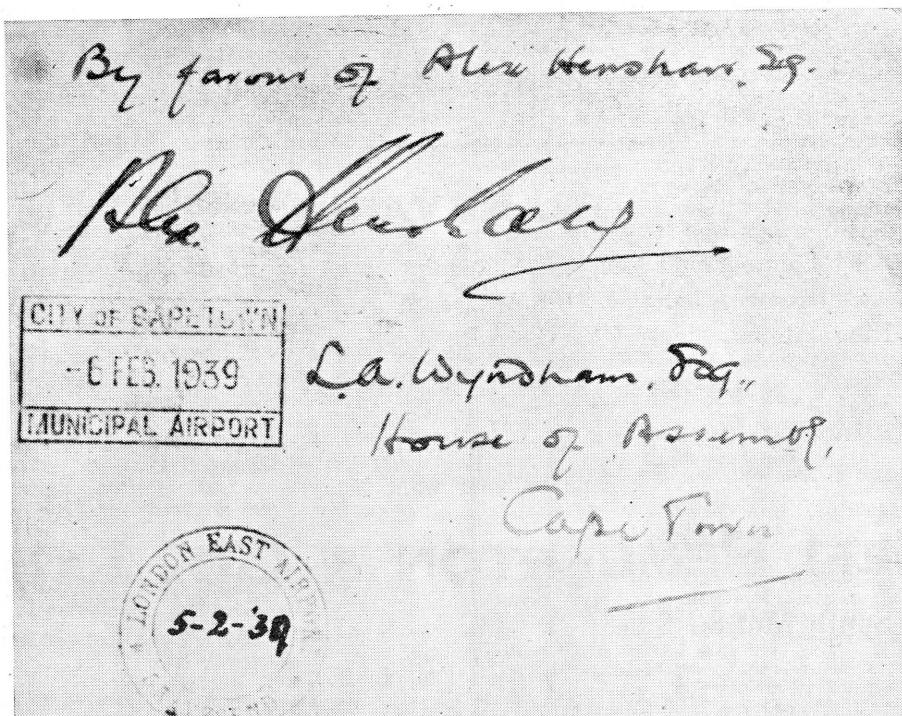 By favour of Alex Henshaw, Esq.
Alex. Henshaw
CITY OF CAPETOWN
-6 FEB. 1939
MUNICIPAL AIRPORT
L.A. Wyndham, Esq.,
House of Assembly,
Cape Town
LONDON EAST AIRPORT
5-2-'39